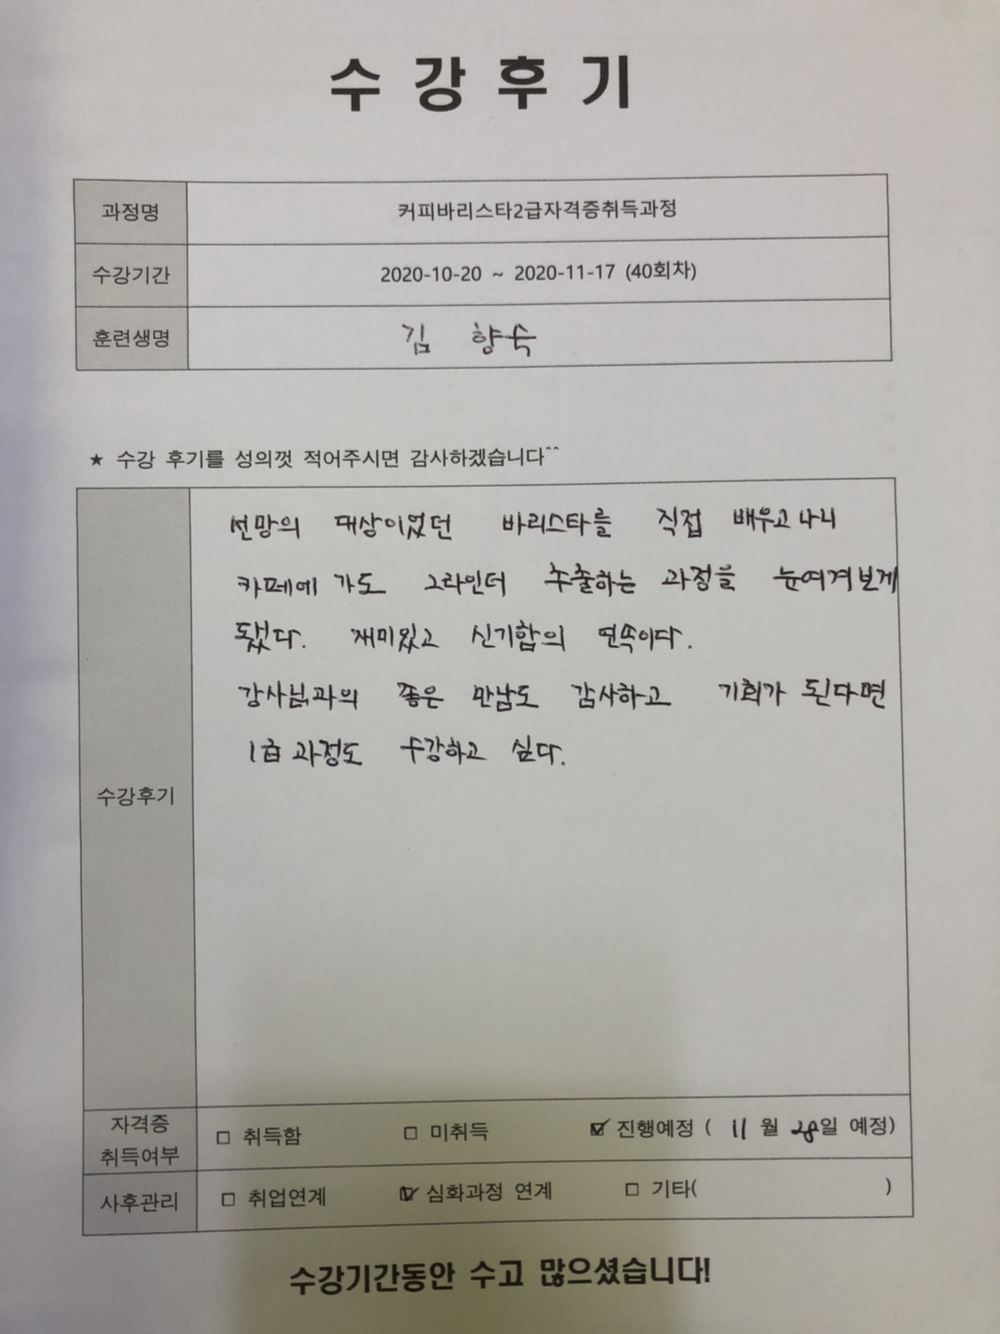 수 강 후 기
과정명 커피바리스타2급자격증취득과정
수강기간 2020-10-20 ~ 2020-11-17 (40회차)
훈련생명 김 향숙
★ 수강 후기를 성의껏 적어주시면 감사하겠습니다^^
선망의 대상이었던 바리스타를 직접 배우고 나니
카페에 가도 그라인더 추출하는 과정을 눈여겨보게
됐다. 재미있고 신기함의 연속이다.
강사님과의 좋은 만남도 감사하고 기회가 된다면
1급 과정도 수강하고 싶다.
수강후기
자격증
취득여부
□ 취득함 □ 미취득 ☑ 진행예정 ( 11 월 28일 예정)
사후관리 □ 취업연계 ☑ 심화과정 연계 □ 기타( )
수강기간동안 수고 많으셨습니다!